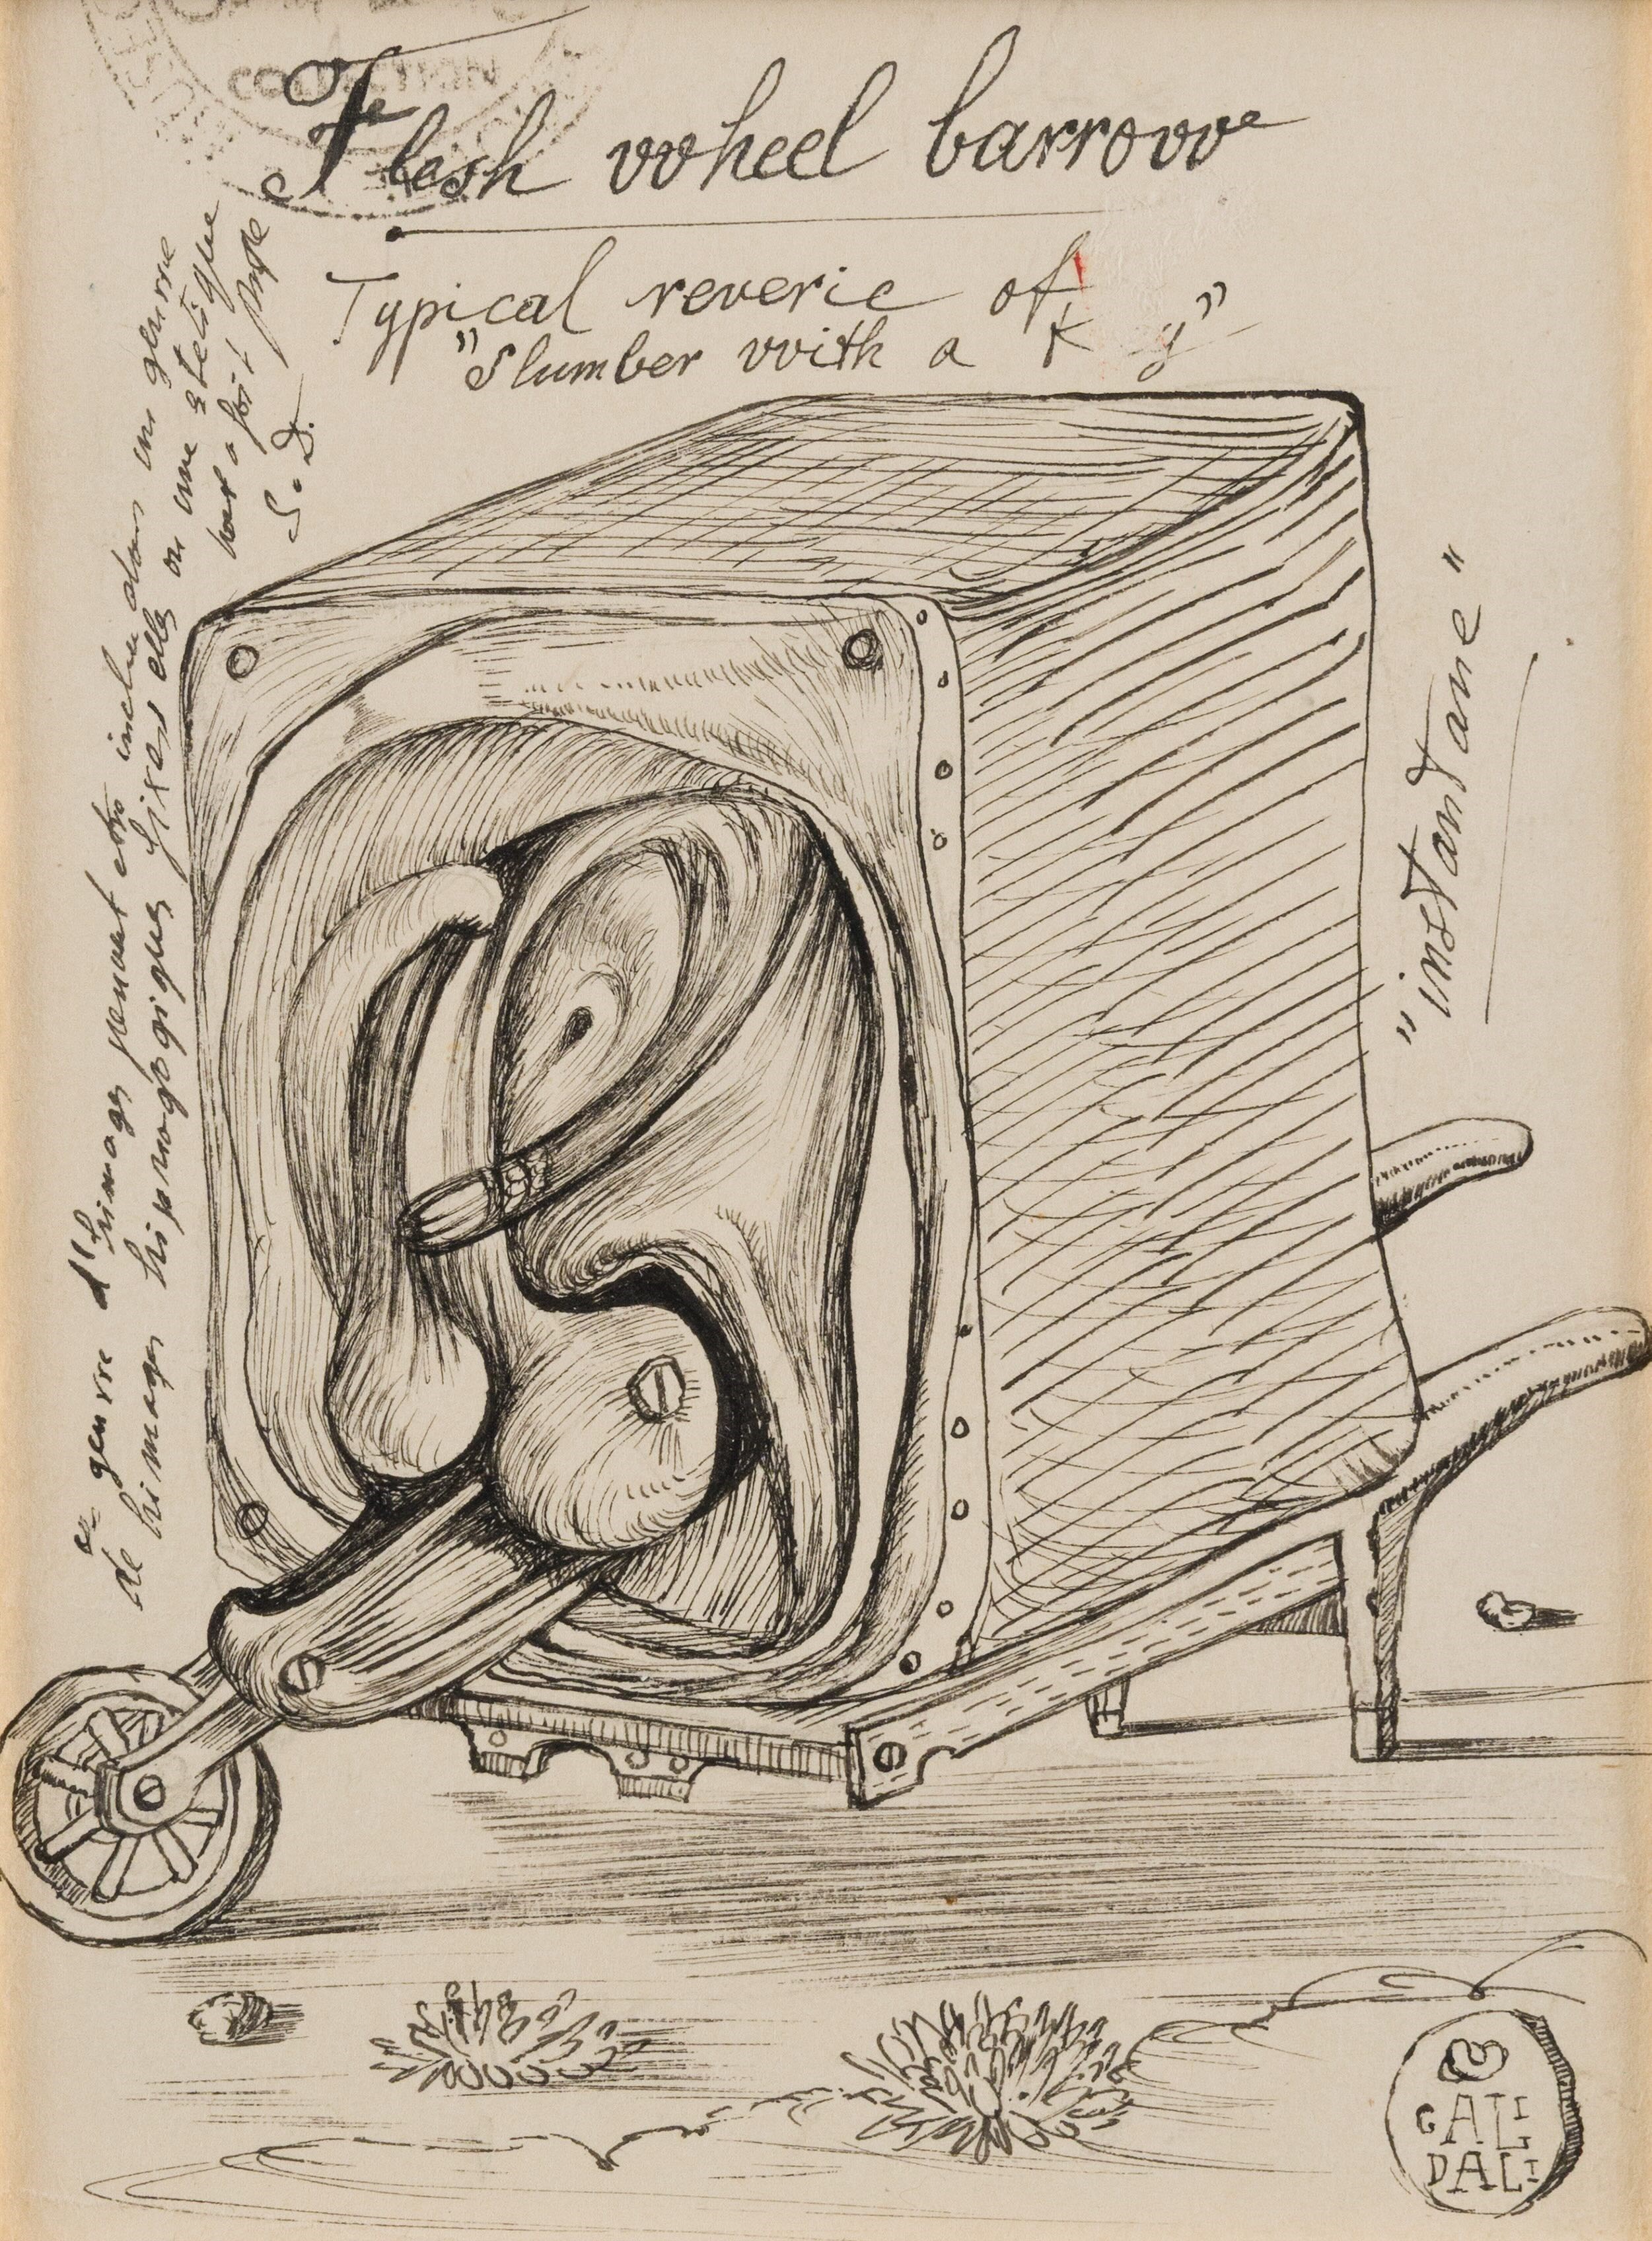 COLLECTION
Flesh wheel barrow
Typical reverie of
"Slumber with a k y"
Ce genre d'himages peuvent etre inclu dans un genrre
de himages hipnogogiques fixes elles on une estetique
tout a fait
S. D.
"instantane"
GALI
DALI